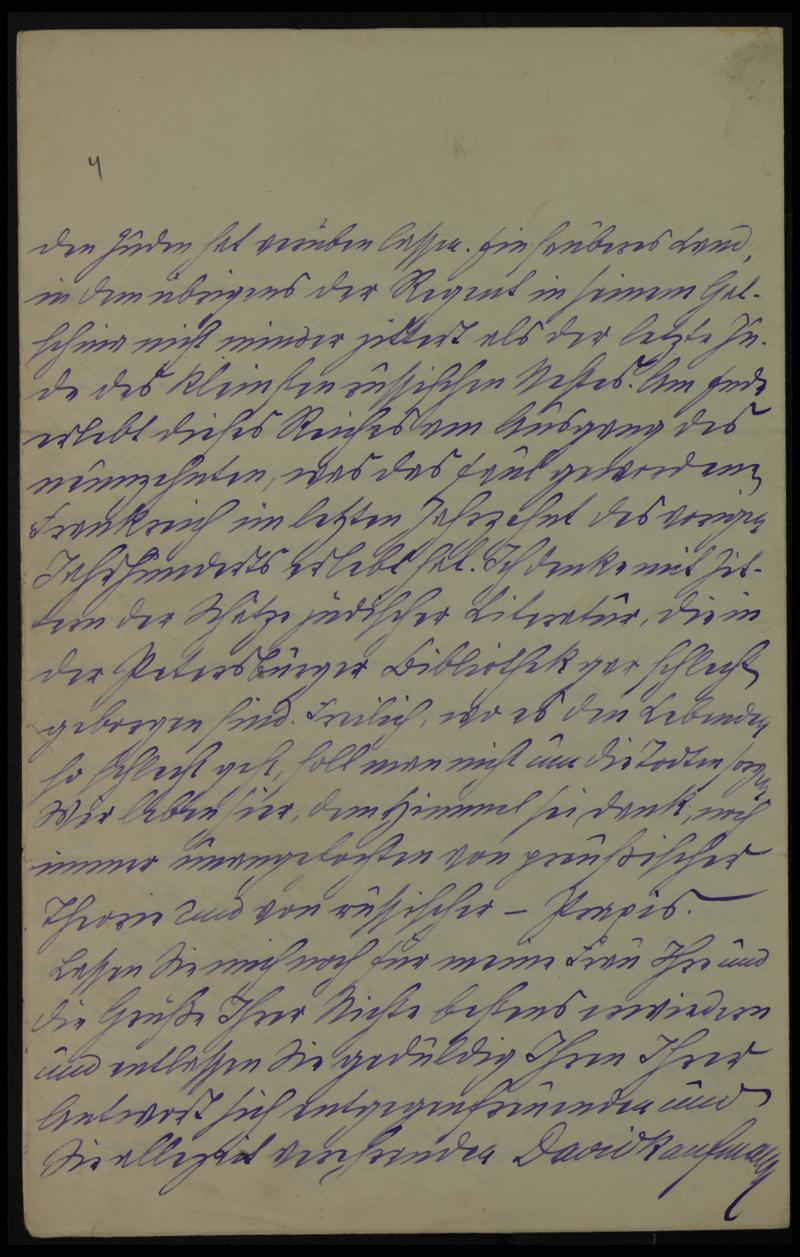 4
den Juden hat verüben lassen. Ein sauberes Land,
in dem übrigens der Regent in seinem Gat-
schina nicht minder zittert als der letzte Ju-
de des kleinsten russischen Nestes. Am Ende
erlebt dieses Reich das am Ausgang des
neunzehnten, was das faul gewordene
Frankreich im letzten Jahrzehnt des vorigen
Jahrhunderts erlebt hat. Ich denke mit Zit-
tern der Schätze jüdischer Literatur, die in
der Petersburger Bibliothek gar schlecht
geborgen sind. Freilich, wo es den Lebenden
so schlecht geht, soll man nicht um die Todten sorgen.
Wir leben hier, dem Himmel sei dank, noch
immer unangefochten von preußischer
Theorie und von russischer – Praxis.
Lassen Sie mich noch für meine Frau Ihre und
die Grüße Ihrer Nichte bestens erwiedern
und entlassen Sie geduldig Ihren Ihrer
Antwort sich entgegenfreuenden und
Sie allezeit verehrenden David Kaufmann